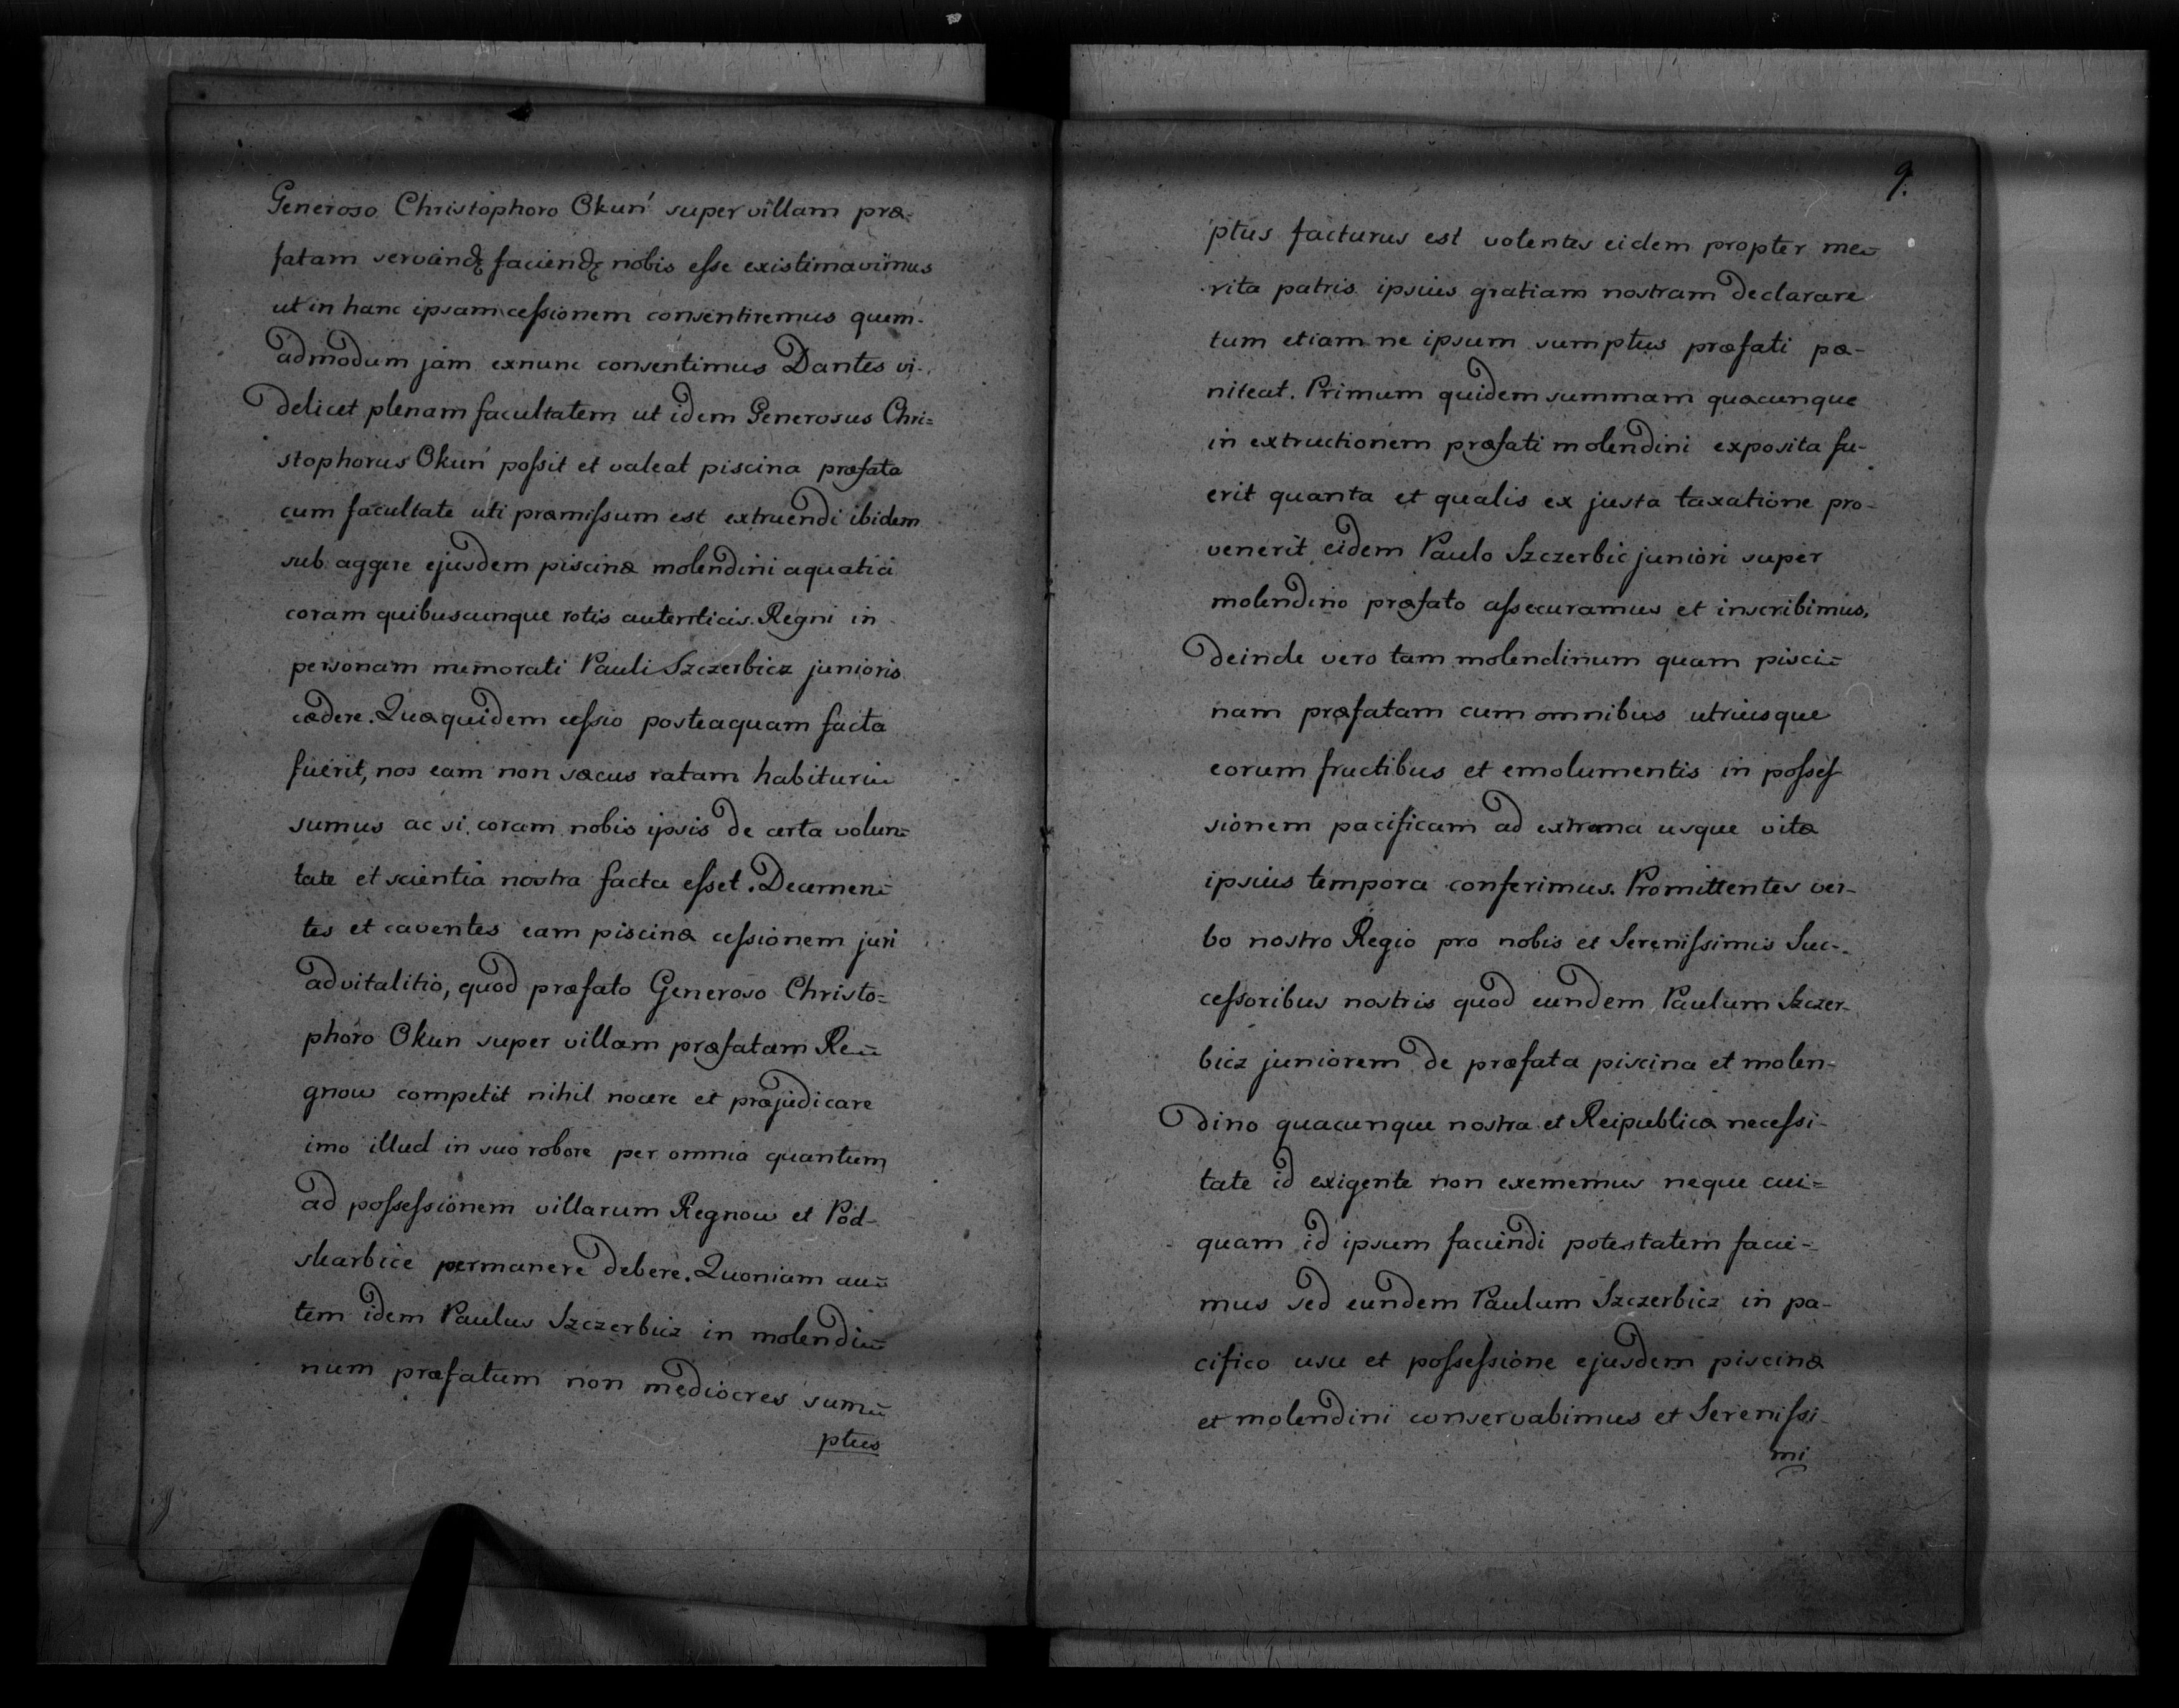 Generoso Christophoro Okuń super villam præ-
fatam servandæ faciendæ nobis esse existimavimus
ut in hanc ipsam cessionem consentiremus quem-
admodum jam exnunc consentimus Dantes vi-
delicet plenam facultatem ut idem Generosus Chri=
stophorus Okuń possit et valeat piscina præfata
cum facultate uti præmissum est extruendi ibidem
sub aggere ejusdem piscinæ molendini aquatici
coram quibuscunque rotis autenticis Regni in
personam memorati Pauli Szczerbicz junioris
cædere. Quæquidem cessio posteaquam facta
fuerit, nos eam non sæcus ratam habituri
sumus ac si coram nobis ipsis de certa volun=
tate et scientia nostra facta esset. Decernen=
tes et caventes eam piscinæ cessionem juri
advitalitio, quod præfato Generoso Christo=
phoro Okun super villam præfatam Re=
gnow competit nihil nocere et præjudicare
imo illud in suo robore per omnia quantum
ad possessionem villarum Regnow et Pod-
skarbice permanere debere. Quoniam au=
tem idem Paulus Szczerbicz in molendi=
num præfatum non mediocres sum=
ptus
9.
ptus facturus est volentes eidem propter me=
rita patris ipsius gratiam nostram declarare
tum etiam ne ipsum sumptus præfati pæ-
niteat. Primum quidem summam quæcunque
in extructionem præfati molendini exposita fu-
erit quanta et qualis ex justa taxatione pro-
venerit eidem Paulo Szczerbic juniori super
molendino præfato assecuramus et inscribimus,
deinde vero tam molendinum quam pisci=
nam præfatam cum omnibus utriusque
eorum fructibus et emolumentis in posses
sionem pacificam ad extrema usque vitæ
ipsius tempora conferimus. Promittentes ver-
bo nostro Regio pro nobis et Serenissimis Suc-
cessoribus nostris quod eundem Paulum Szczer-
bicz juniorem de præfata piscina et molen-
dino quacunque nostra et Reipublicæ necessi-
tate id exigente non exememus neque cui=
quam id ipsum faciendi potestatem facie-
mus sed eundem Paulum Szczerbicz in pa-
cifico usu et possessione ejusdem piscinæ
et molendini conservabimus et Serenissi-
mi